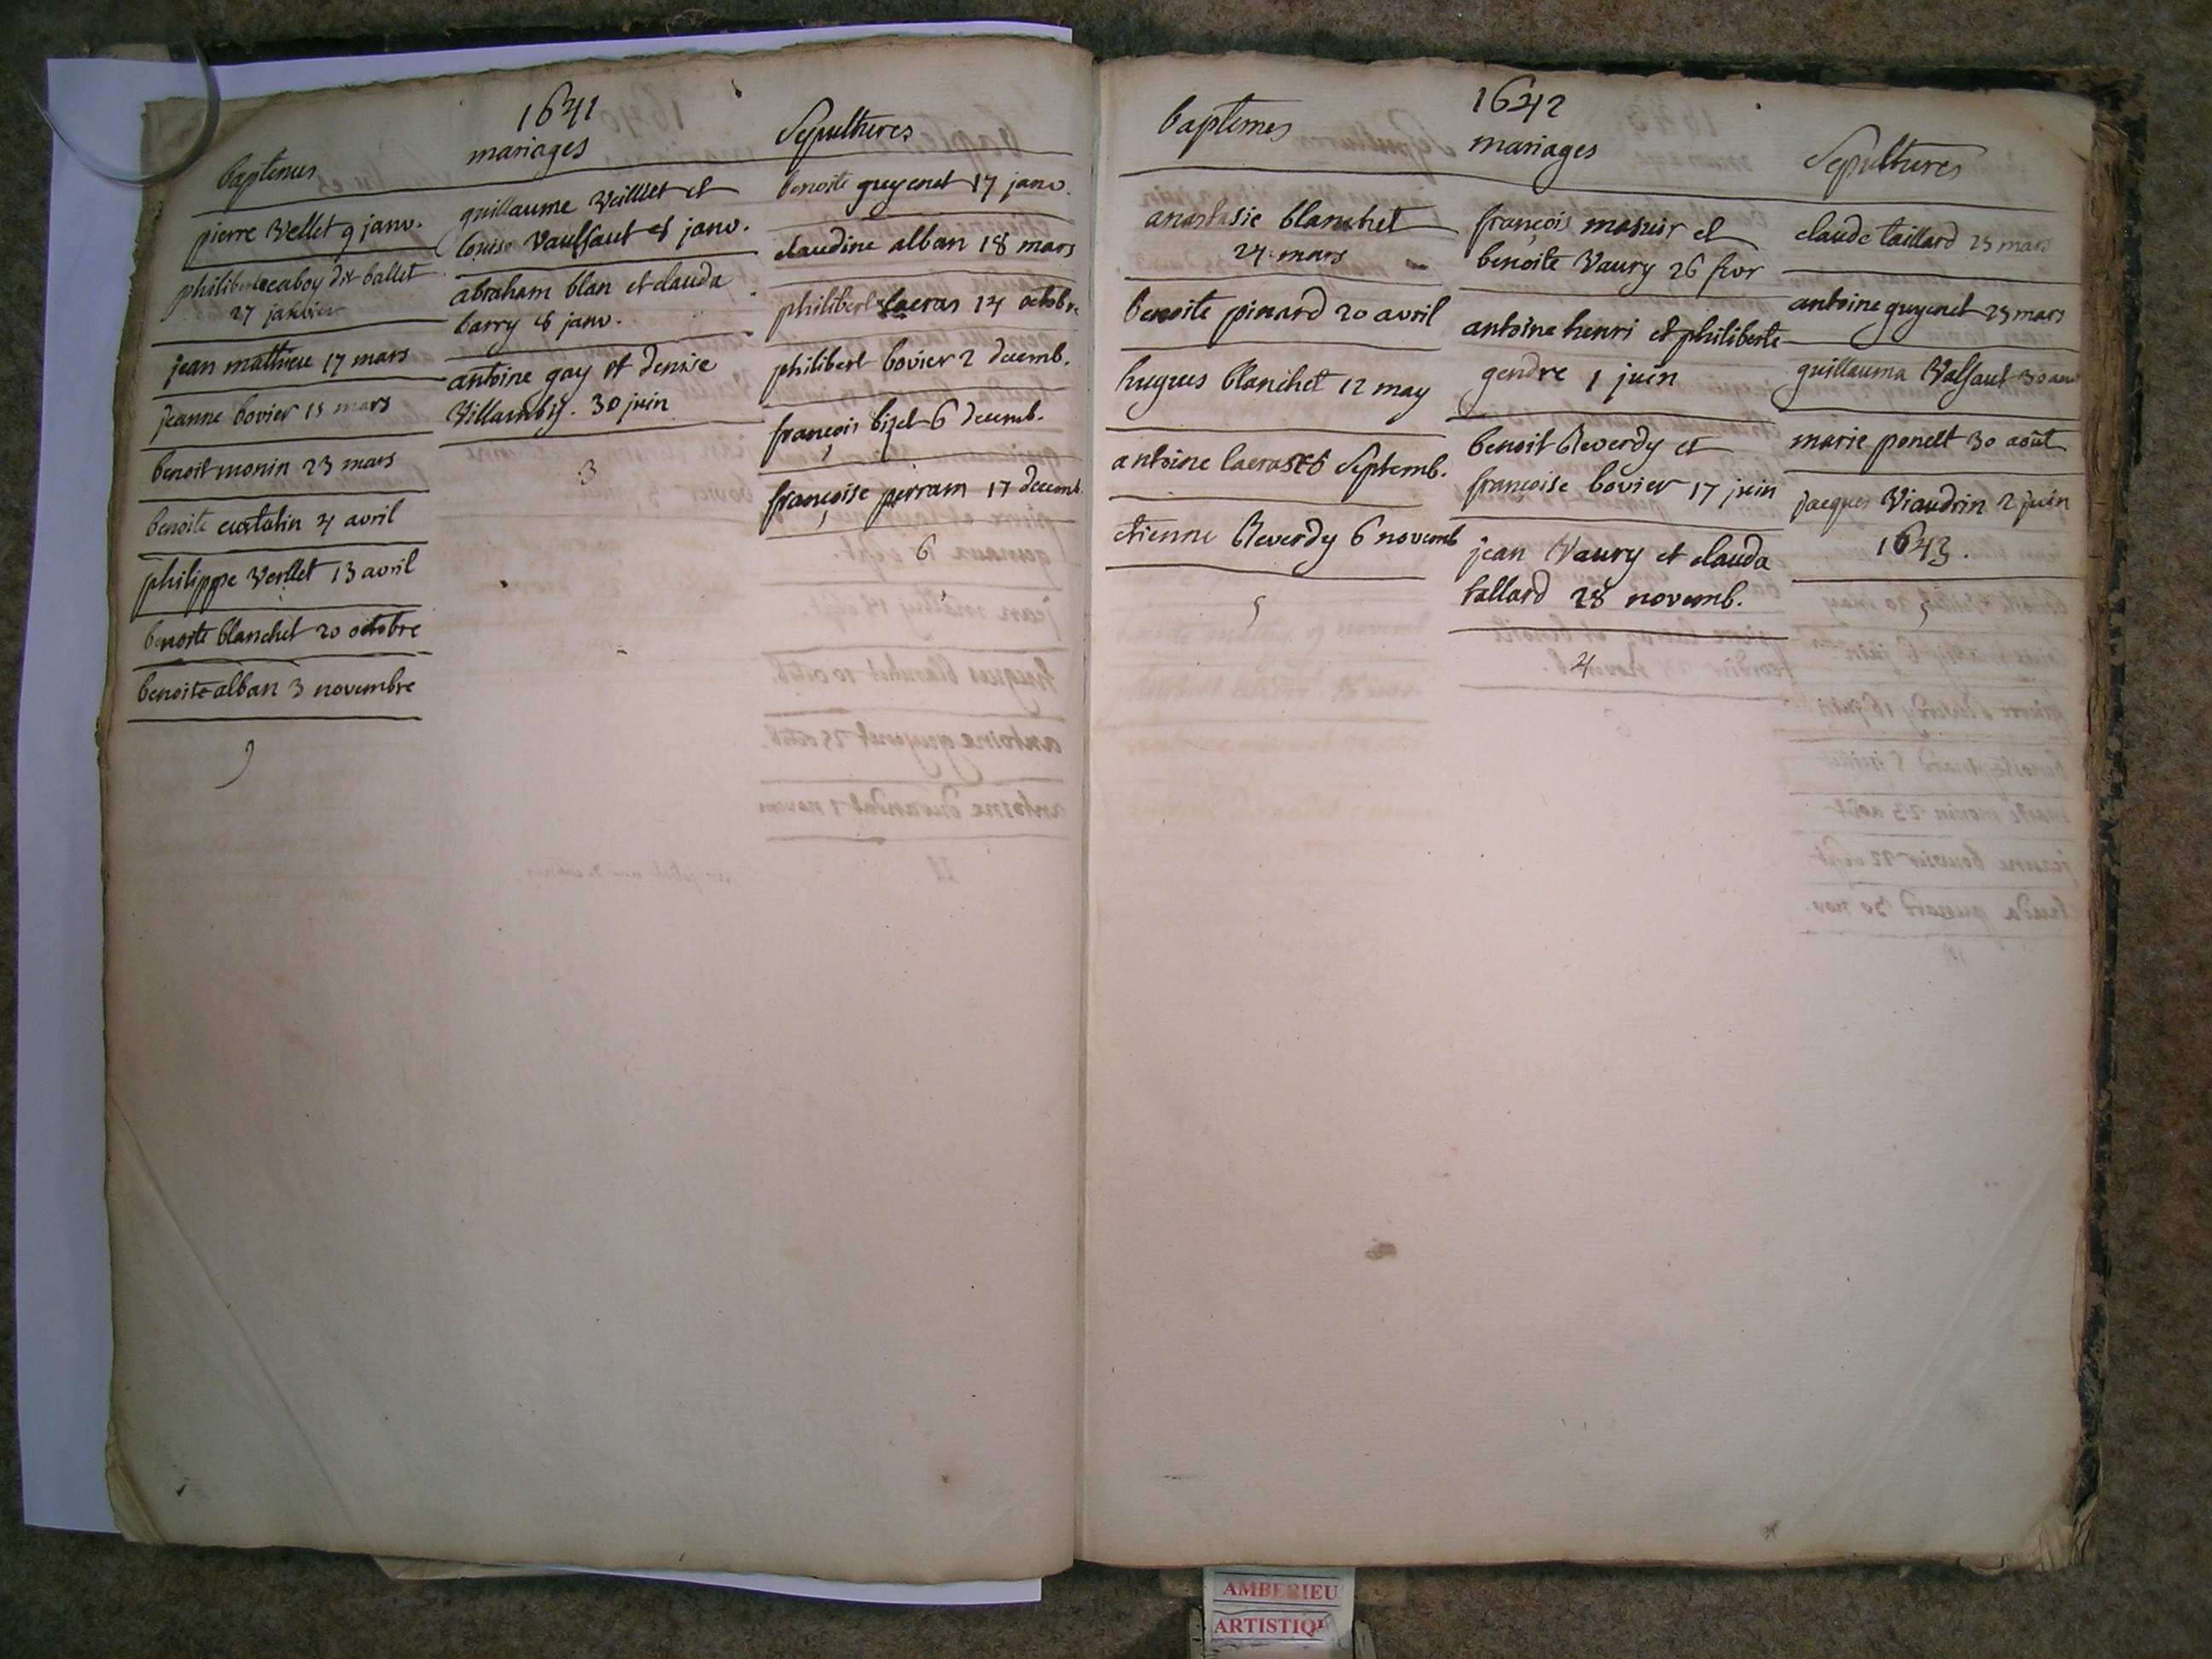 1641
baptemes
mariages
Sepultures
pierre Vellet 9 janv.
philiberte caboy dit ballet
27 janvier
jean mathieu 17 mars
jeanne bovier 15 mars
benoit monin 23 mars
benoite curtelin 4 avril
philippe Verllet 13 avril
benoite blanchet 20 octobre
benoite alban 3 novembre
9
guillaume Veilllet et
louise Vaulsaut 8 janv.
abraham blan et clauda
barry 8 janv.
antoine gay et denise
30 juin
3
benoite guyenet 17 janv.
claudine alban 18 mars
philibert lacras 14 octobr.
philibert bovier 2 decemb.
françois bizet 6 decemb.
françoise perram 17 decemb.
6
1642
baptemes
mariages
Sepultures
anastasie blanchet
24 mars
benoite pinard 20 avril
hugues blanchet 12 may
antoine lacras 6 Septemb.
etienne Reverdy 6 novemb
5
françois masuir et
benoite Vaury 26 fevr
antoine henri et philiberte
gendre 1 juin
benoit Reverdy et
françoise bovier 17 juin
jean Vaury et clauda
tallard 28 novemb.
4
claude taillard 25 mars
antoine guyenet 25 mars
guillauma Valsaut 30
marie ponelt 30 août
jacques Viaudrin 2 juin
1643.
5
AMBERIEU